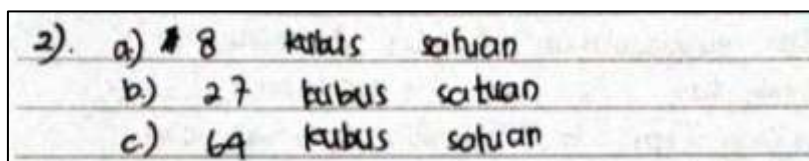 2). a) 8 kubus satuan
b) 27 kubus satuan
c) 64 kubus satuan